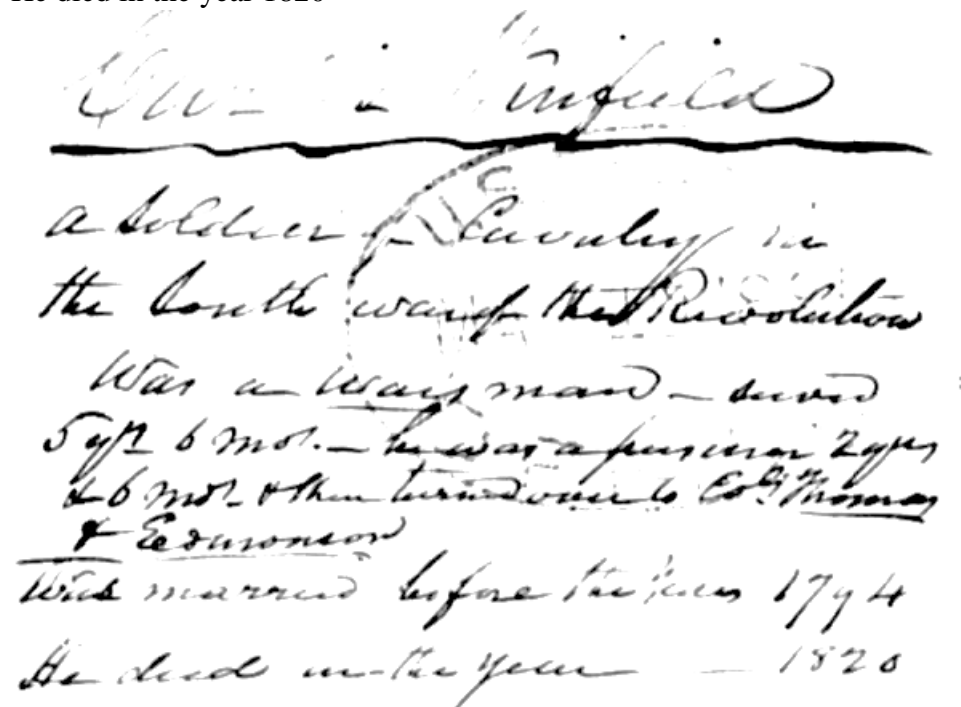 He died in the year 1820
Winfield
a Soldier Cavalry in
the South war of the Revolution
Was a man – served
5 yrs 6 mos. – he was a 2 yrs
& 6 mos & then turned over to Cols Thomas
& Edmonson
Was married before the year 1794
He died in the year – 1820